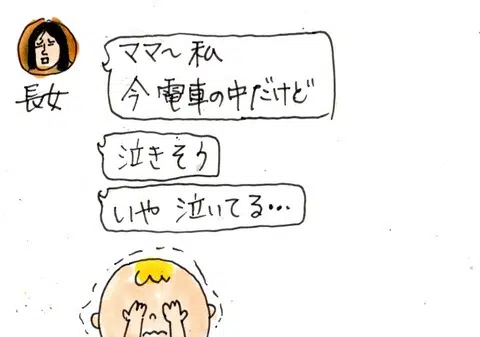 ママ〜私
今電車の中だけど
長女
泣きそう
いや 泣いてる…